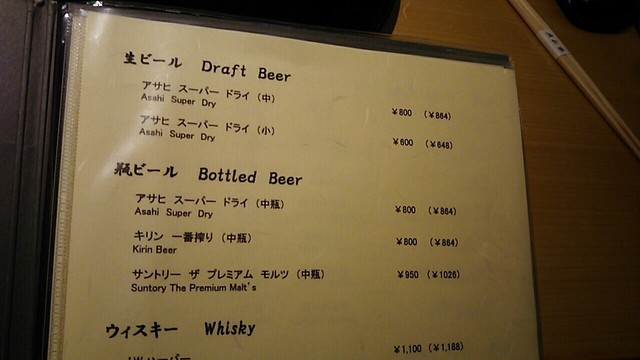 生ビール Draft Beer
アサヒ スーパー ドライ（中）
Asahi Super Dry ￥800 （￥864）
アサヒ スーパー ドライ（小）
Asahi Super Dry ￥600 （￥648）
瓶ビール Bottled Beer
アサヒ スーパー ドライ（中瓶）
Asahi Super Dry ￥800 （￥864）
キリン 一番搾り（中瓶） ￥800 （￥864）
Kirin Beer
サントリー ザ プレミアム モルツ（中瓶） ￥950 （￥1026）
Suntory The Premium Malt's
ウィスキー Whisky
￥1,100 （￥1,188）